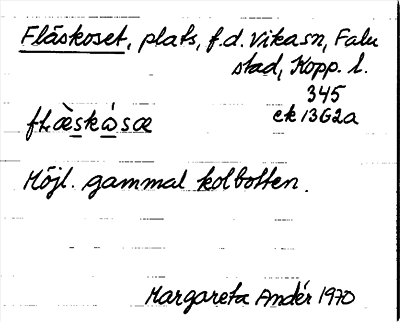 Fläskoset, plats, f.d. Vikasn, Falu
stad, Kopp. l.
345
ek 13G2a
fʟæ̀skåsæ
Möjl. gammal kolbotten.
Margareta Andér 1970